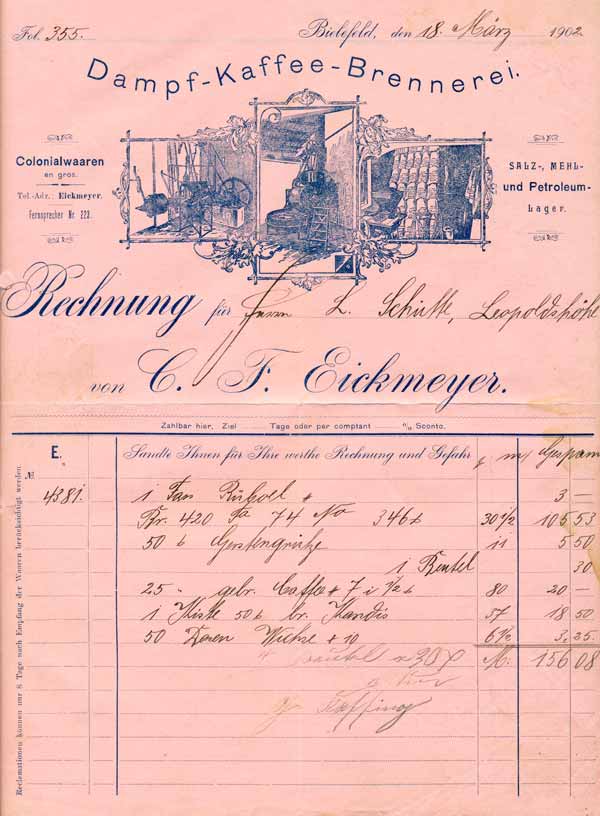 Fol. 355.
Bielefeld, den 18. März 1902.
Dampf-Kaffee-Brennerei.
Colonialwaaren
en gros.
Tel.-Adr.: Eickmeyer.
Fernsprecher Nr. 223.
SALZ-, MEHL-
und Petroleum-
Lager.
Rechnung für Herrn L. Schütte, Leopoldshöhe
von C. F. Eickmeyer.
Zahlbar hier, Ziel Tage oder per comptant % Sconto.
E. Sandte Ihnen für Ihre werthe Rechnung und Gefahr
№
4381. 1 Fass Rüböl 3 —
Br. 420 Ta 74 No 346 30 1/2 105 53
50 Gerstengrütze 11 5 50
1 Beutel 30
25 gebr. Caffee 7 i 1/2 80 20 —
1 Kiste 50 br. Kandis 37 18 50
50 Dosen Wichse 10 6 1/2 3,25.
M: 156 08
Reclamationen können nur 8 Tage nach Empfang der Waaren berücksichtigt werden.